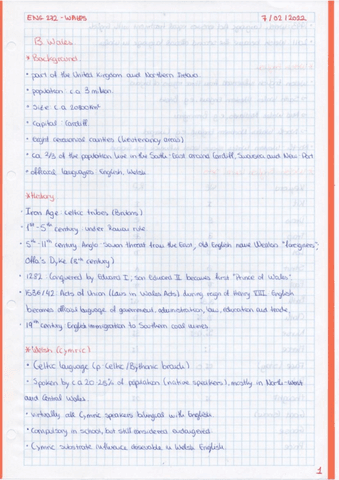 ENG 272 - WALES 7/02/2022
B Wales
* Background
• part of the United Kingdom and Northern
• population: ca 3 million
• Size: ca
• capital: Cardiff
• Eight ceremonial counties (lieutenancy areas)
• ca 2/3 of the population live in the South-East around Cardiff, Swansea and New Port
• official languages: English, Welsh
* History
• Iron Age: Celtic tribes (Britons)
• 1st - 5th century: under Roman rule
• 5th - 11th century: Anglo-Saxon threat from the East, Old English name Wealas "foreigners";
Offa's Dyke (8th century)
• 1282: Conquered by Edward I, son Edward II becomes first "Prince of Wales"
• 1536/42: Acts of Union (Laws in Wales Acts) during reign of Henry VIII. English
becomes official language of government, administration, law, education and trade.
• 19th century: English immigration to Southern coal mines
* Welsh (Cymric)
• Celtic language (p Celtic / Brythonic branch)
• Spoken by ca 20-25% of population (native speakers), mostly in North-West
and Central Wales
• virtually all Cymric speakers bilingual with English
• Compulsory in school, but still considered endangered
• Cymric substrate influence observable in Welsh English.
1